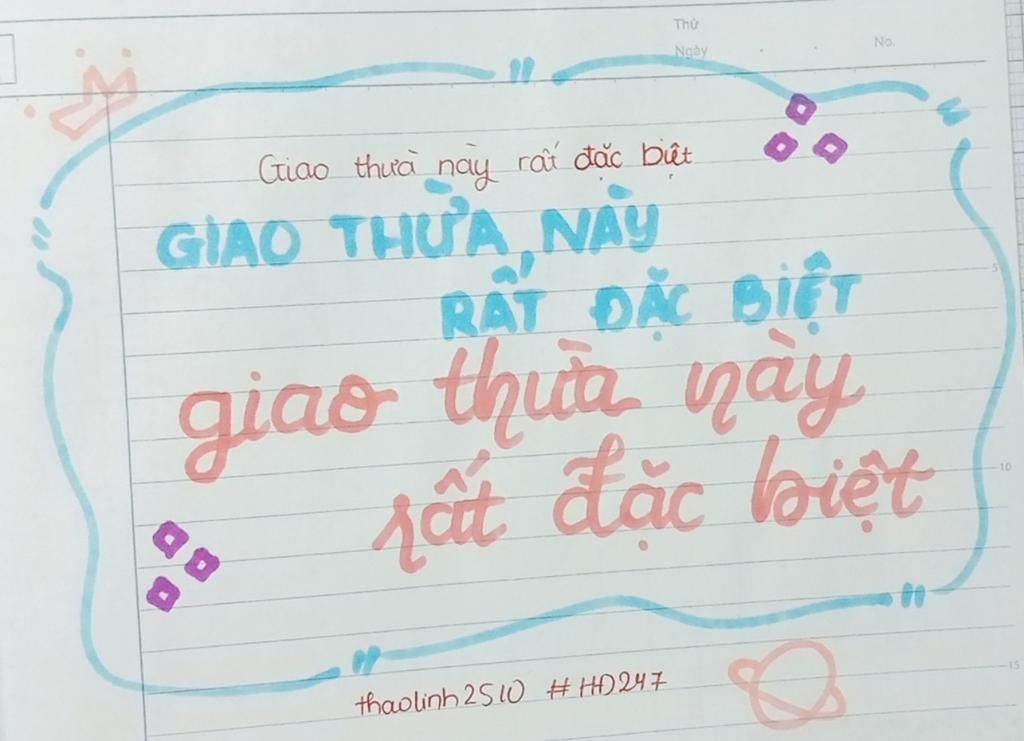 Thứ
Ngày No.
Giao thừa này rất đặc biệt
GIAO THỪA NÀY
RẤT ĐẶC BIỆT
giao thừa này
rất đặc biệt
thaolinh2510 #HD247
5
10
15